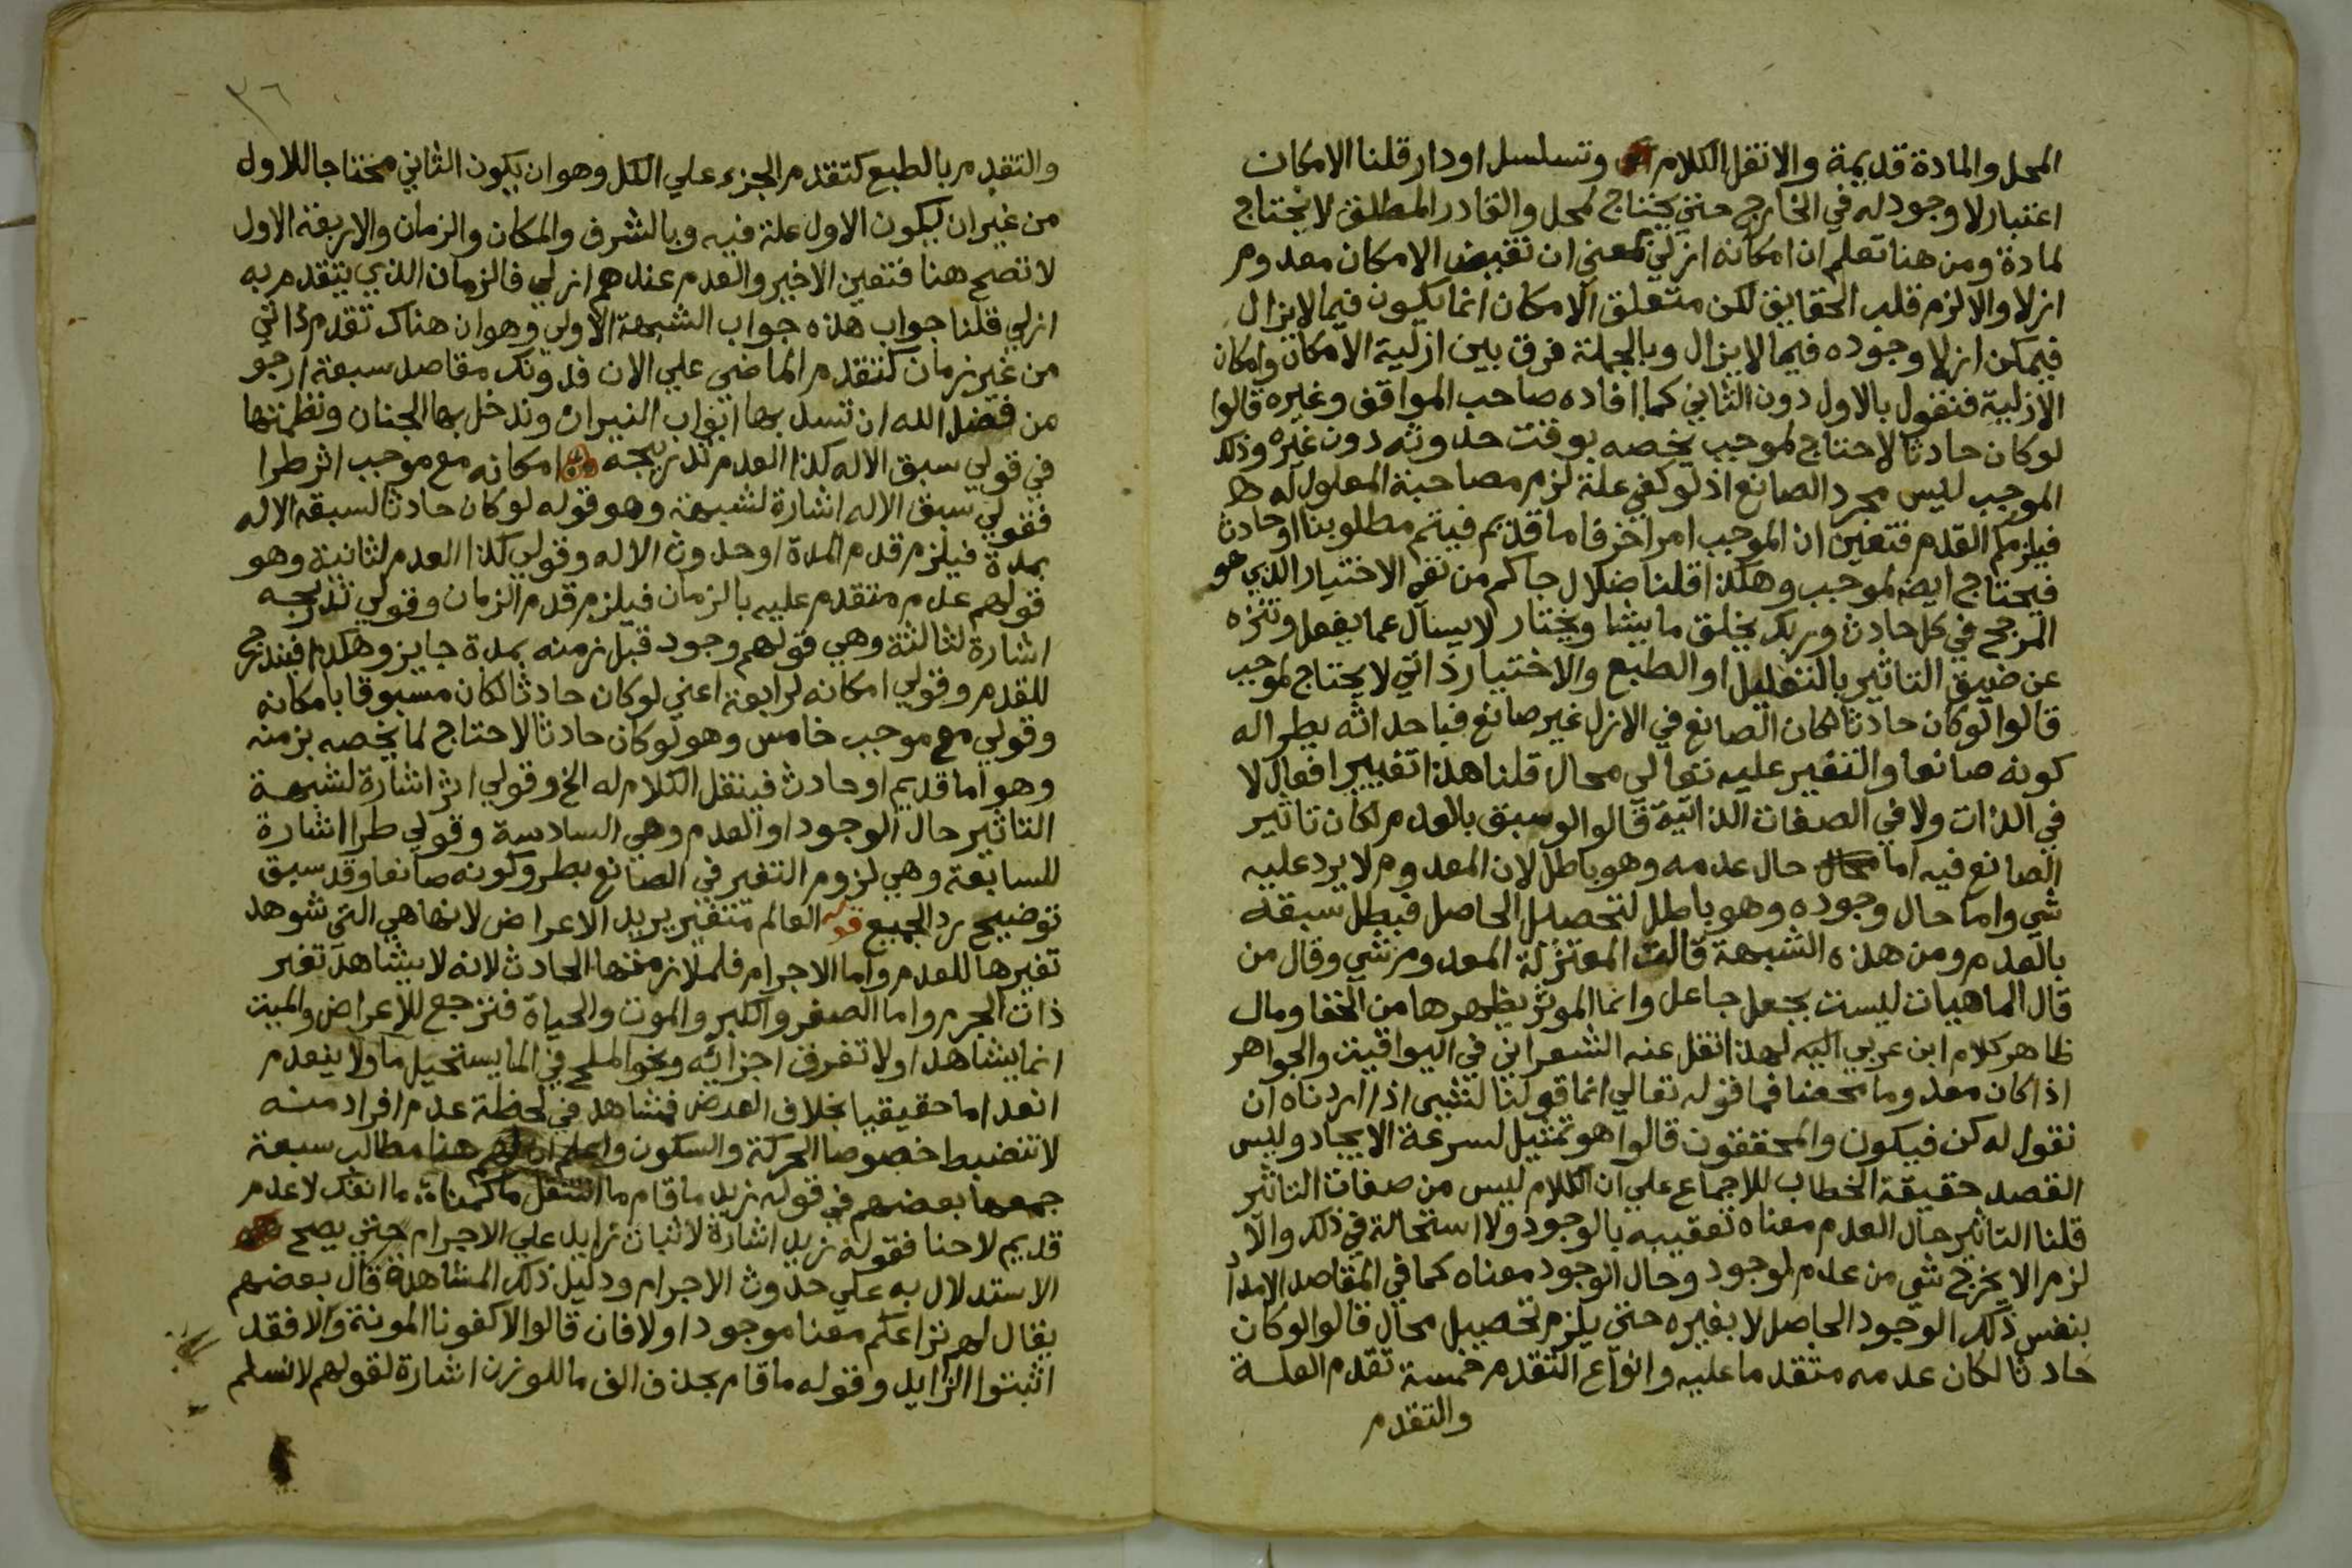 المحل والمادة قديمة والانقل الكلام وتسلسل اودار قلنا الامكان
اعتبار لا وجود له في الخارج حتى يحتاج لمحل والقادر المطلق لا يحتاج
لمادة ومن هنا تعلم ان امكانه ازلي بمعنى ان نقيض الامكان معدوم
ازلا والا لزم قلب الحقايق لكن متعلق الامكان انما يكون فيما لايزال
فيمكن ازلا وجوده فيما لايزال وبالجملة فرق بين ازلية الامكان وامكان
الازلية فنقول بالاول دون الثاني كما افاده صاحب المواقف وغيره قالوا
لوكان حادثا لاحتاج لموجب يخصه بوقت حدوثه دون غيره وذلك
الموجب ليس مجرد الصانع اذ لو كفى علة لزم مصاحبة المعلول له
فيلزم القدم فتعين ان الموجب امر اخر فاما قديم فيتم مطلوبنا او حادث
فيحتاج ايضا لموجب وهكذا قلنا ضلال جاكم من نفي الاختيار الذي هو
المرجح في كل حادث وربك يخلق ما يشا ويختار لا يسال عما يفعل وتنزه
عن ضيق التاثير بالتعليل او الطبع والاختيار ذاتي لا يحتاج لموجب
قالوا لوكان حادثا لكان الصانع في الازل غير صانع فباحداثه يطرا له
كونه صانعا والتغير عليه تعالى محال قلنا هذا تغيير افعال لا
في الذات ولا في الصفات الذاتية قالوا لو سبق بالعدم لكان تاثير
الصانع فيه اما حال عدمه وهو باطل لان المعدوم لا يرد عليه
شي واما حال وجوده وهو باطل لتحصيل الحاصل فبطل سبقه
بالعدم ومن هذه الشبهة قالت المعتزلة المعدوم شي وقال من
قال الماهيات ليست بجعل جاعل وانما الموثر يظهرها من الخفا ومال
ظاهر كلام ابن عربي اليه لهذا نقل عنه الشعراني في اليواقيت والجواهر
اذا كان معدوما محضا فما قوله تعالي انما قولنا لشيى اذا اردناه ان
نقول له كن فيكون والمحققون قالوا هو تمثيل لسرعة الايجاد وليس
القصد حقيقة الخطاب للاجماع علي ان الكلام ليس من صفات التاثير
قلنا التاثير حال العدم معناه تعقيبه بالوجود ولا استحالة في ذلك والا
لزم الا يخرج شي من عدم لوجود وحال الوجود معناه كما في المقاصد الامداد
بنفس ذلك الوجود الحاصل لا بغيره حتى يلزم تحصيل محال قالوا لوكان
حادثا لكان عدمه متقدما عليه وانواع التقدم خمسة تقدم العلة
والتقدم
٣٦
والتقدم بالطبع كتقدم الجزء علي الكل وهو ان يكون الثاني محتاجا للاول
من غير ان يكون الاول علة فيه وبالشرف والمكان والزمان والاربعة الاول
لا تصح هنا فتعين الاخير والعدم عندهم ازلي فالزمان الذي يتقدم به
ازلي قلنا جواب هذه جواب الشبهة الاولي وهو ان هناك تقدم ذاتي
من غير زمان كتقدم الماضي علي الان فدونك مقاصد سبعة ارجو
من فضل الله ان تسد بها ابواب النيران وتدخل بها الجنان ونظمتها
في قولي سبق الاله كذا العدم تدريجه امكانه مع موجب اثر طرا
فقولي سبق الاله اشارة لشبهة وهو قوله لوكان حادثا لسبقه الاله
بمدة فيلزم قدم المدة او حدوث الاله وقولي كذا العدم لثانية وهو
قولهم عدم متقدم عليه بالزمان فيلزم قدم الزمان وقولي تدريجه
اشارة لثالثة وهي قولهم وجود قبل زمنه بمدة جايز وهكذا فيتدرج
للقدم وقولي امكانه لرابعة اعني لوكان حادثا لكان مسبوقا بامكانه
وقولي مع موجب خامس وهو لوكان حادثا لاحتاج لما يخصه بزمنه
وهو اما قديم او حادث فينقل الكلام له الخ وقولي اثر اشارة لشبهة
التاثير حال الوجود او العدم وهي السادسة وقولي طرا اشارة
للسابعة وهي لزوم التغير في الصانع بطرو كونه صانعا وقد سبق
توضيح رد الجميع قوله العالم متغير يريد الاعراض لانها هي التي شوهد
تغيرها للعدم واما الاجرام فلملازمتها الحادث لانه لا يشاهد تغير
ذات الجرم واما الصغر والكبر والموت والحياة فترجع للاعراض والميت
انما يشاهد اولا تفرق اجزائه ونحو الملح في الما يستحيل ما ولا ينعدم
انعداما حقيقيا بخلاف العرض فتشاهد في لحظة عدم افراد منه
لا تنضبط خصوصا الحركة والسكون واعلم ان لهم هنا مطالب سبعة
جمعها بعضهم في قوله زيد ما قام ما انتقل ما كمنا ما انفك لا عدم
قديم لاحنا فقوله زيد اشارة لاثبات زايد علي الاجرام حتى يصح
الاستدلال به علي حدوث الاجرام ودليل ذلك المشاهدة قال بعضهم
يقال لهم نزاعكم معنا موجود اولا فان قالوا لا كفونا المونة والا فقد
اثبتوا الزايد وقوله ما قام بحذف الف ما للوزن اشارة لقولهم لا نسلم